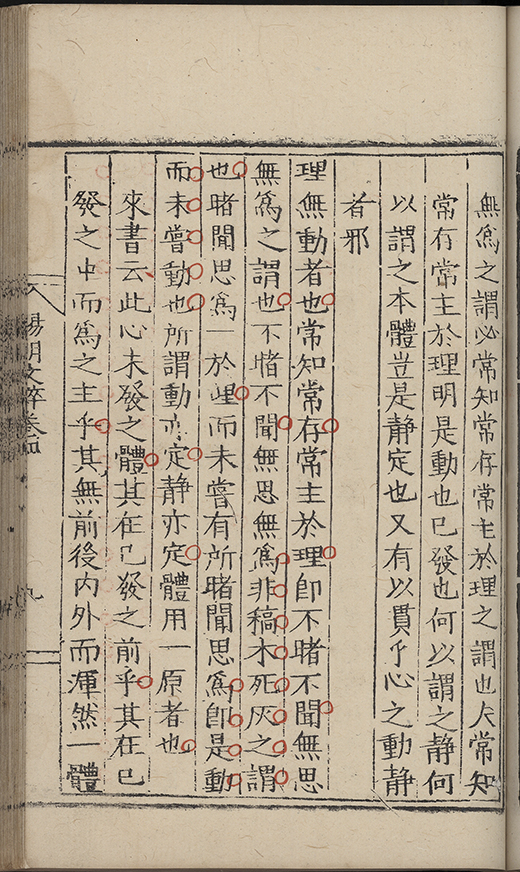 無爲之謂必常知常存常主於理之謂也夫常知
常存常主於理明是動也已發也何以謂之静何
以謂之本體豈是静定也又有以貫乎心之動静
者邪
理無動者也常知常存常主於理卽不睹不聞無思
無爲之謂也不睹不聞無思無爲非稿木死灰之謂
也睹聞思爲一於理而未嘗有所睹聞思爲卽是動
而未嘗動也所謂動亦定静亦定體用一原者也
來書云此心未發之體其在已發之前乎其在已
發之中而爲之主乎其無前後内外而渾然一體
陽明文粹卷
九